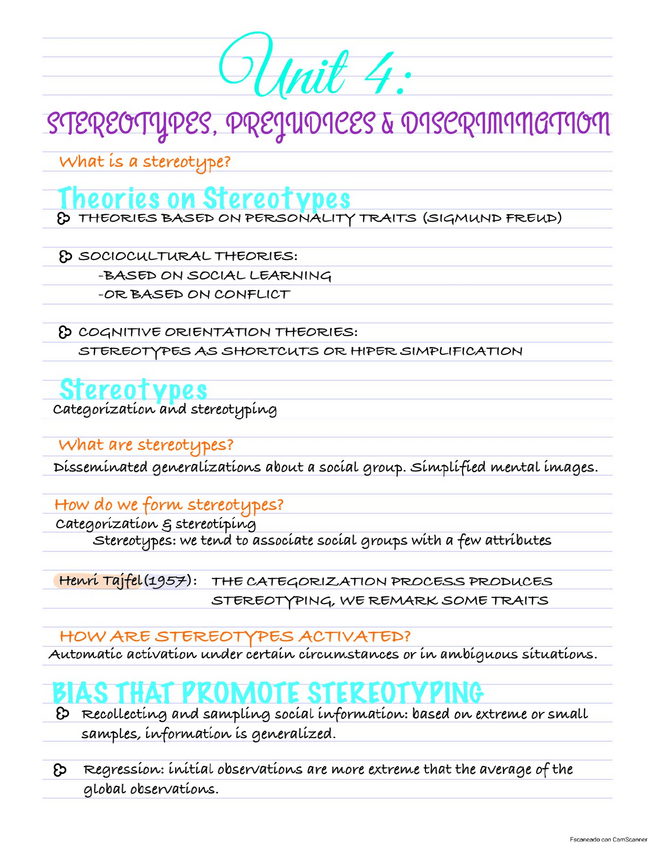 Unit 4:
STEREOTYPES, PREJUDICES & DISCRIMINATION
What is a stereotype?
Theories on Stereotypes
THEORIES BASED ON PERSONALITY TRAITS (SIGMUND FREUD)
SOCIOCULTURAL THEORIES:
-BASED ON SOCIAL LEARNING
-OR BASED ON CONFLICT
COGNITIVE ORIENTATION THEORIES:
STEREOTYPES AS SHORTCUTS OR HIPER SIMPLIFICATION
Stereotypes
Categorization and stereotyping
What are stereotypes?
Disseminated generalizations about a social group. Simplified mental images.
How do we form stereotypes?
Categorization & stereotiping
Stereotypes: we tend to associate social groups with a few attributes
Henri Tajfel (1957): THE CATEGORIZATION PROCESS PRODUCES
STEREOTYPING, WE REMARK SOME TRAITS
HOW ARE STEREOTYPES ACTIVATED?
Automatic activation under certain circumstances or in ambiguous situations.
BIAS THAT PROMOTE STEREOTYPING
Recollecting and sampling social information: based on extreme or small
samples, information is generalized.
Regression: initial observations are more extreme that the average of the
global observations.
Escaneado con CamScanner